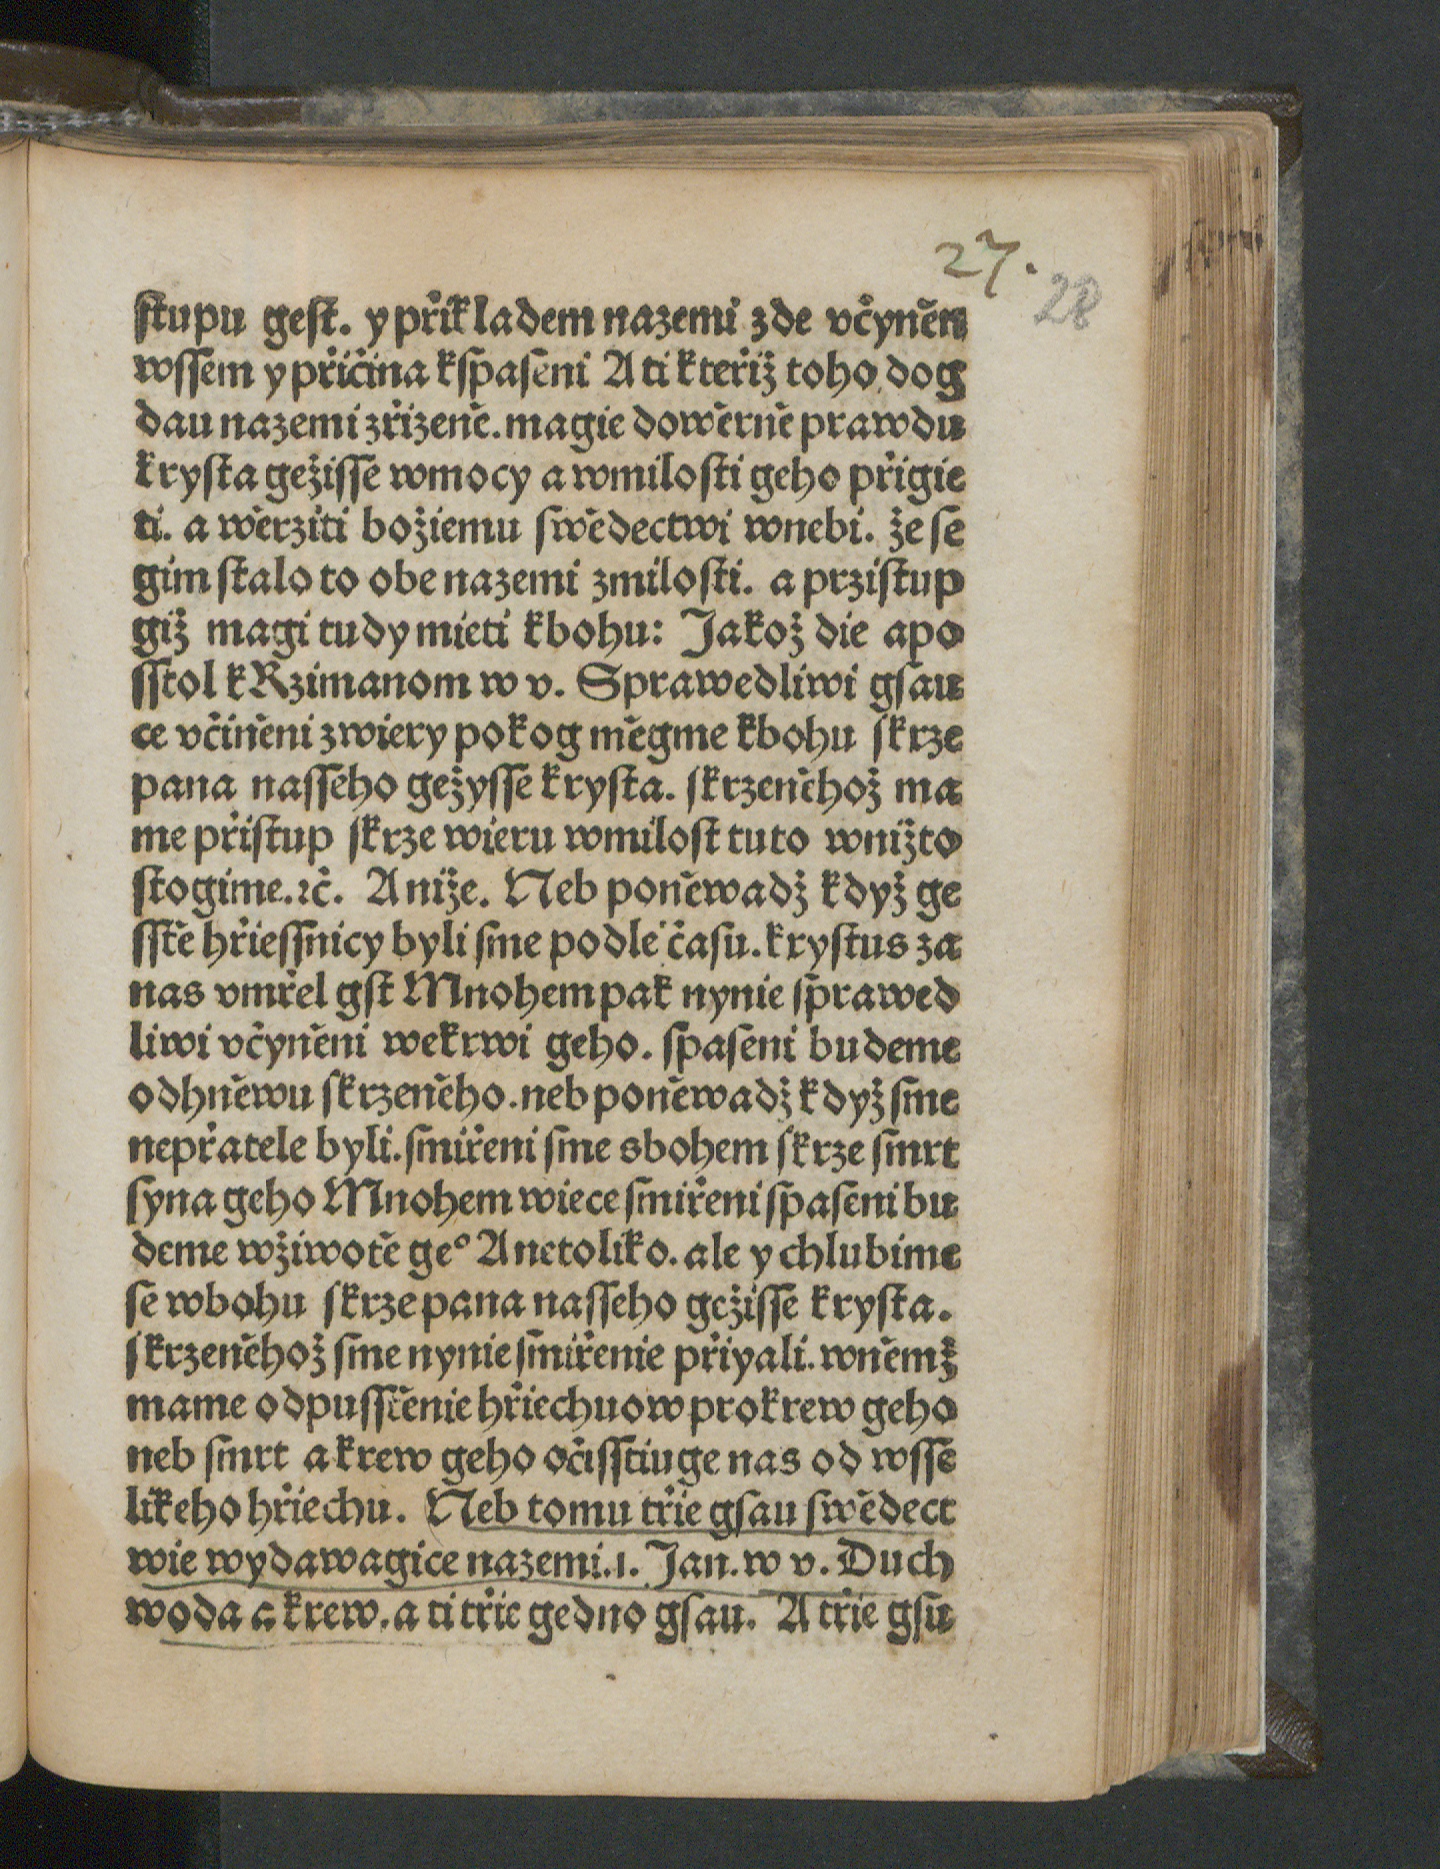 27.
28
ſtupu geſt. y přikladem nazemi zde včyněn
wſſem y přičina kſpaſeni A ti kteřiž toho dog
dau nazemi zřizeně. magie dowěrně prawdu
kryſta gežiſſe wmocy a wmiloſti geho přigie
ti. a wěrziti božiemu ſwědectwi wnebi. že ſe
gim ſtalo to obe nazemi zmiloſti. a prziſtup
giž magi tudy mieti kbohu: Jakož die apo
ſſtol k Rzimanom w v. Sprawedliwi gſau
ce včiněni zwiery pokog měgme kbohu ſkrze
pana naſſeho gežyſſe kryſta. ſkrzeněhož ma
me přiſtup ſkrze wieru wmiloſt tuto wnižto
ſtogime.ꝛč. A niže. Neb poněwadž když ge
ſſtě hřieſſnicy byli ſme podle čaſu. kryſtus za
nas vmřel gſt Mnohem pak nynie ſprawed
liwi včyněni wekrwi geho. ſpaſeni budeme
odhněwu ſkrzeněho. neb poněwadž když ſme
nepřatele byli. ſmiřeni ſme sbohem ſkrze ſmrt
ſyna geho Mnohem wiece ſmiřeni ſpaſeni bu
deme wžiwotě ge° A netoliko. ale y chlubime
ſe wbohu ſkrze pana naſſeho gežiſſe kryſta.
ſkrzeněhož ſme nynie ſmiřenie přiyali. wněmž
mame odpuſſtěnie hřiechuow prokrew geho
neb ſmrt a krew geho očiſſtiuge nas od wſſe
likeho hřiechu. Neb tomu třie gſau ſwědect
wie wydawagice nazemi.1. Jan. w v. Duch
woda a krew. a ti třie gedno gſau. A třie gſu